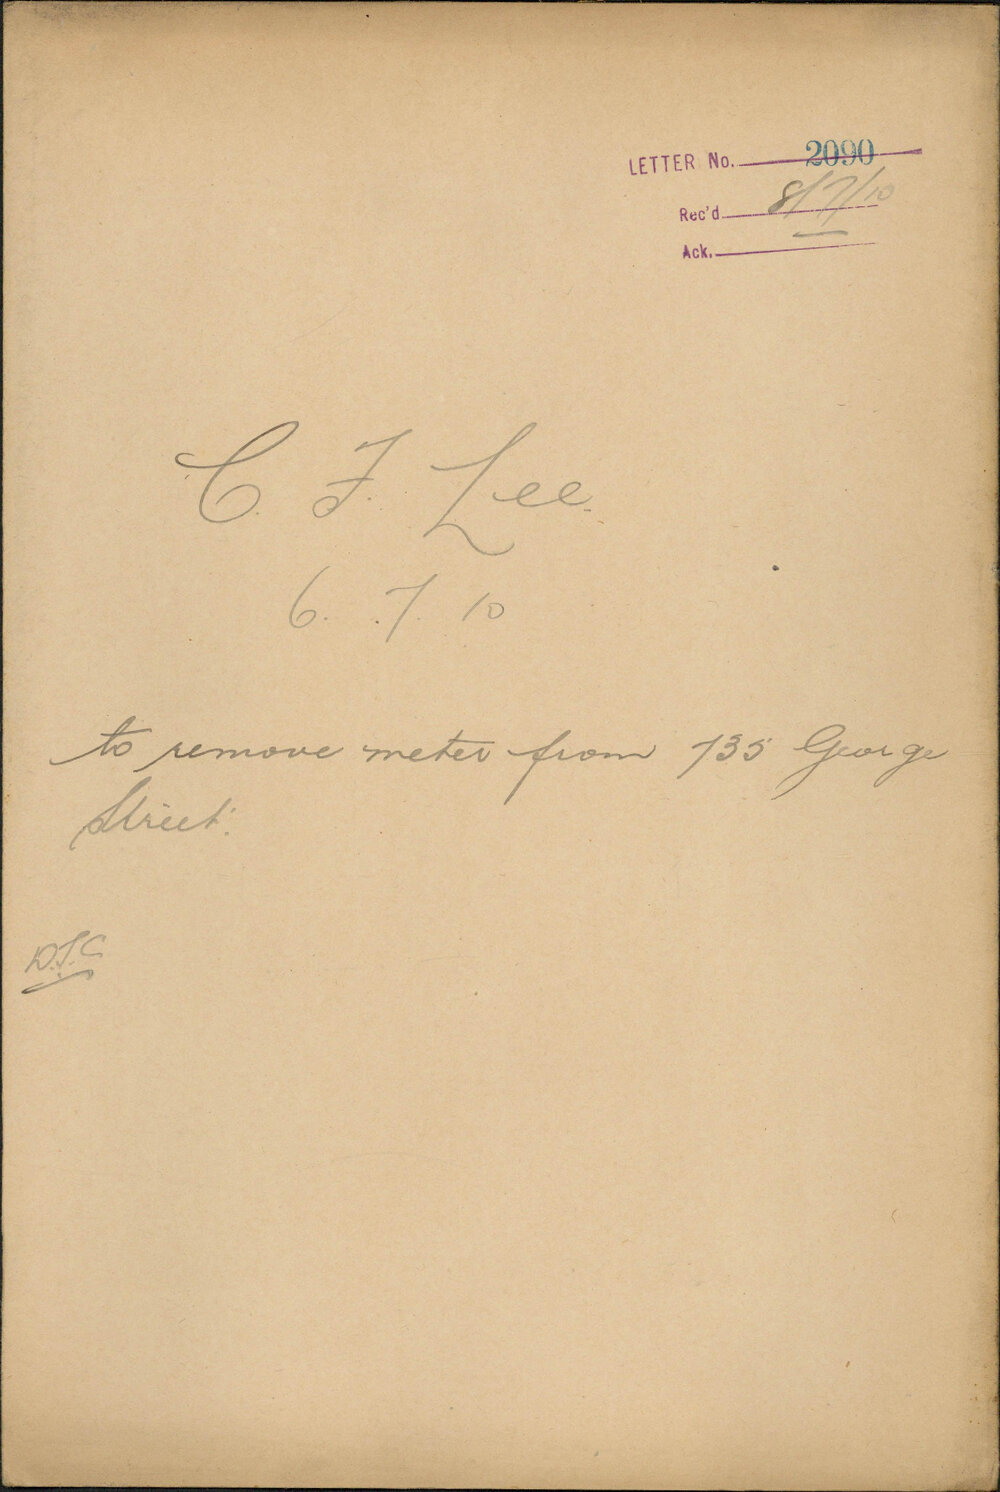 LETTER No. 2090
Rec'd 8/7/10
Ack.
C. F. Lee.
6. .7. 10
to remove meter from 735 George
Street.
D.J.C